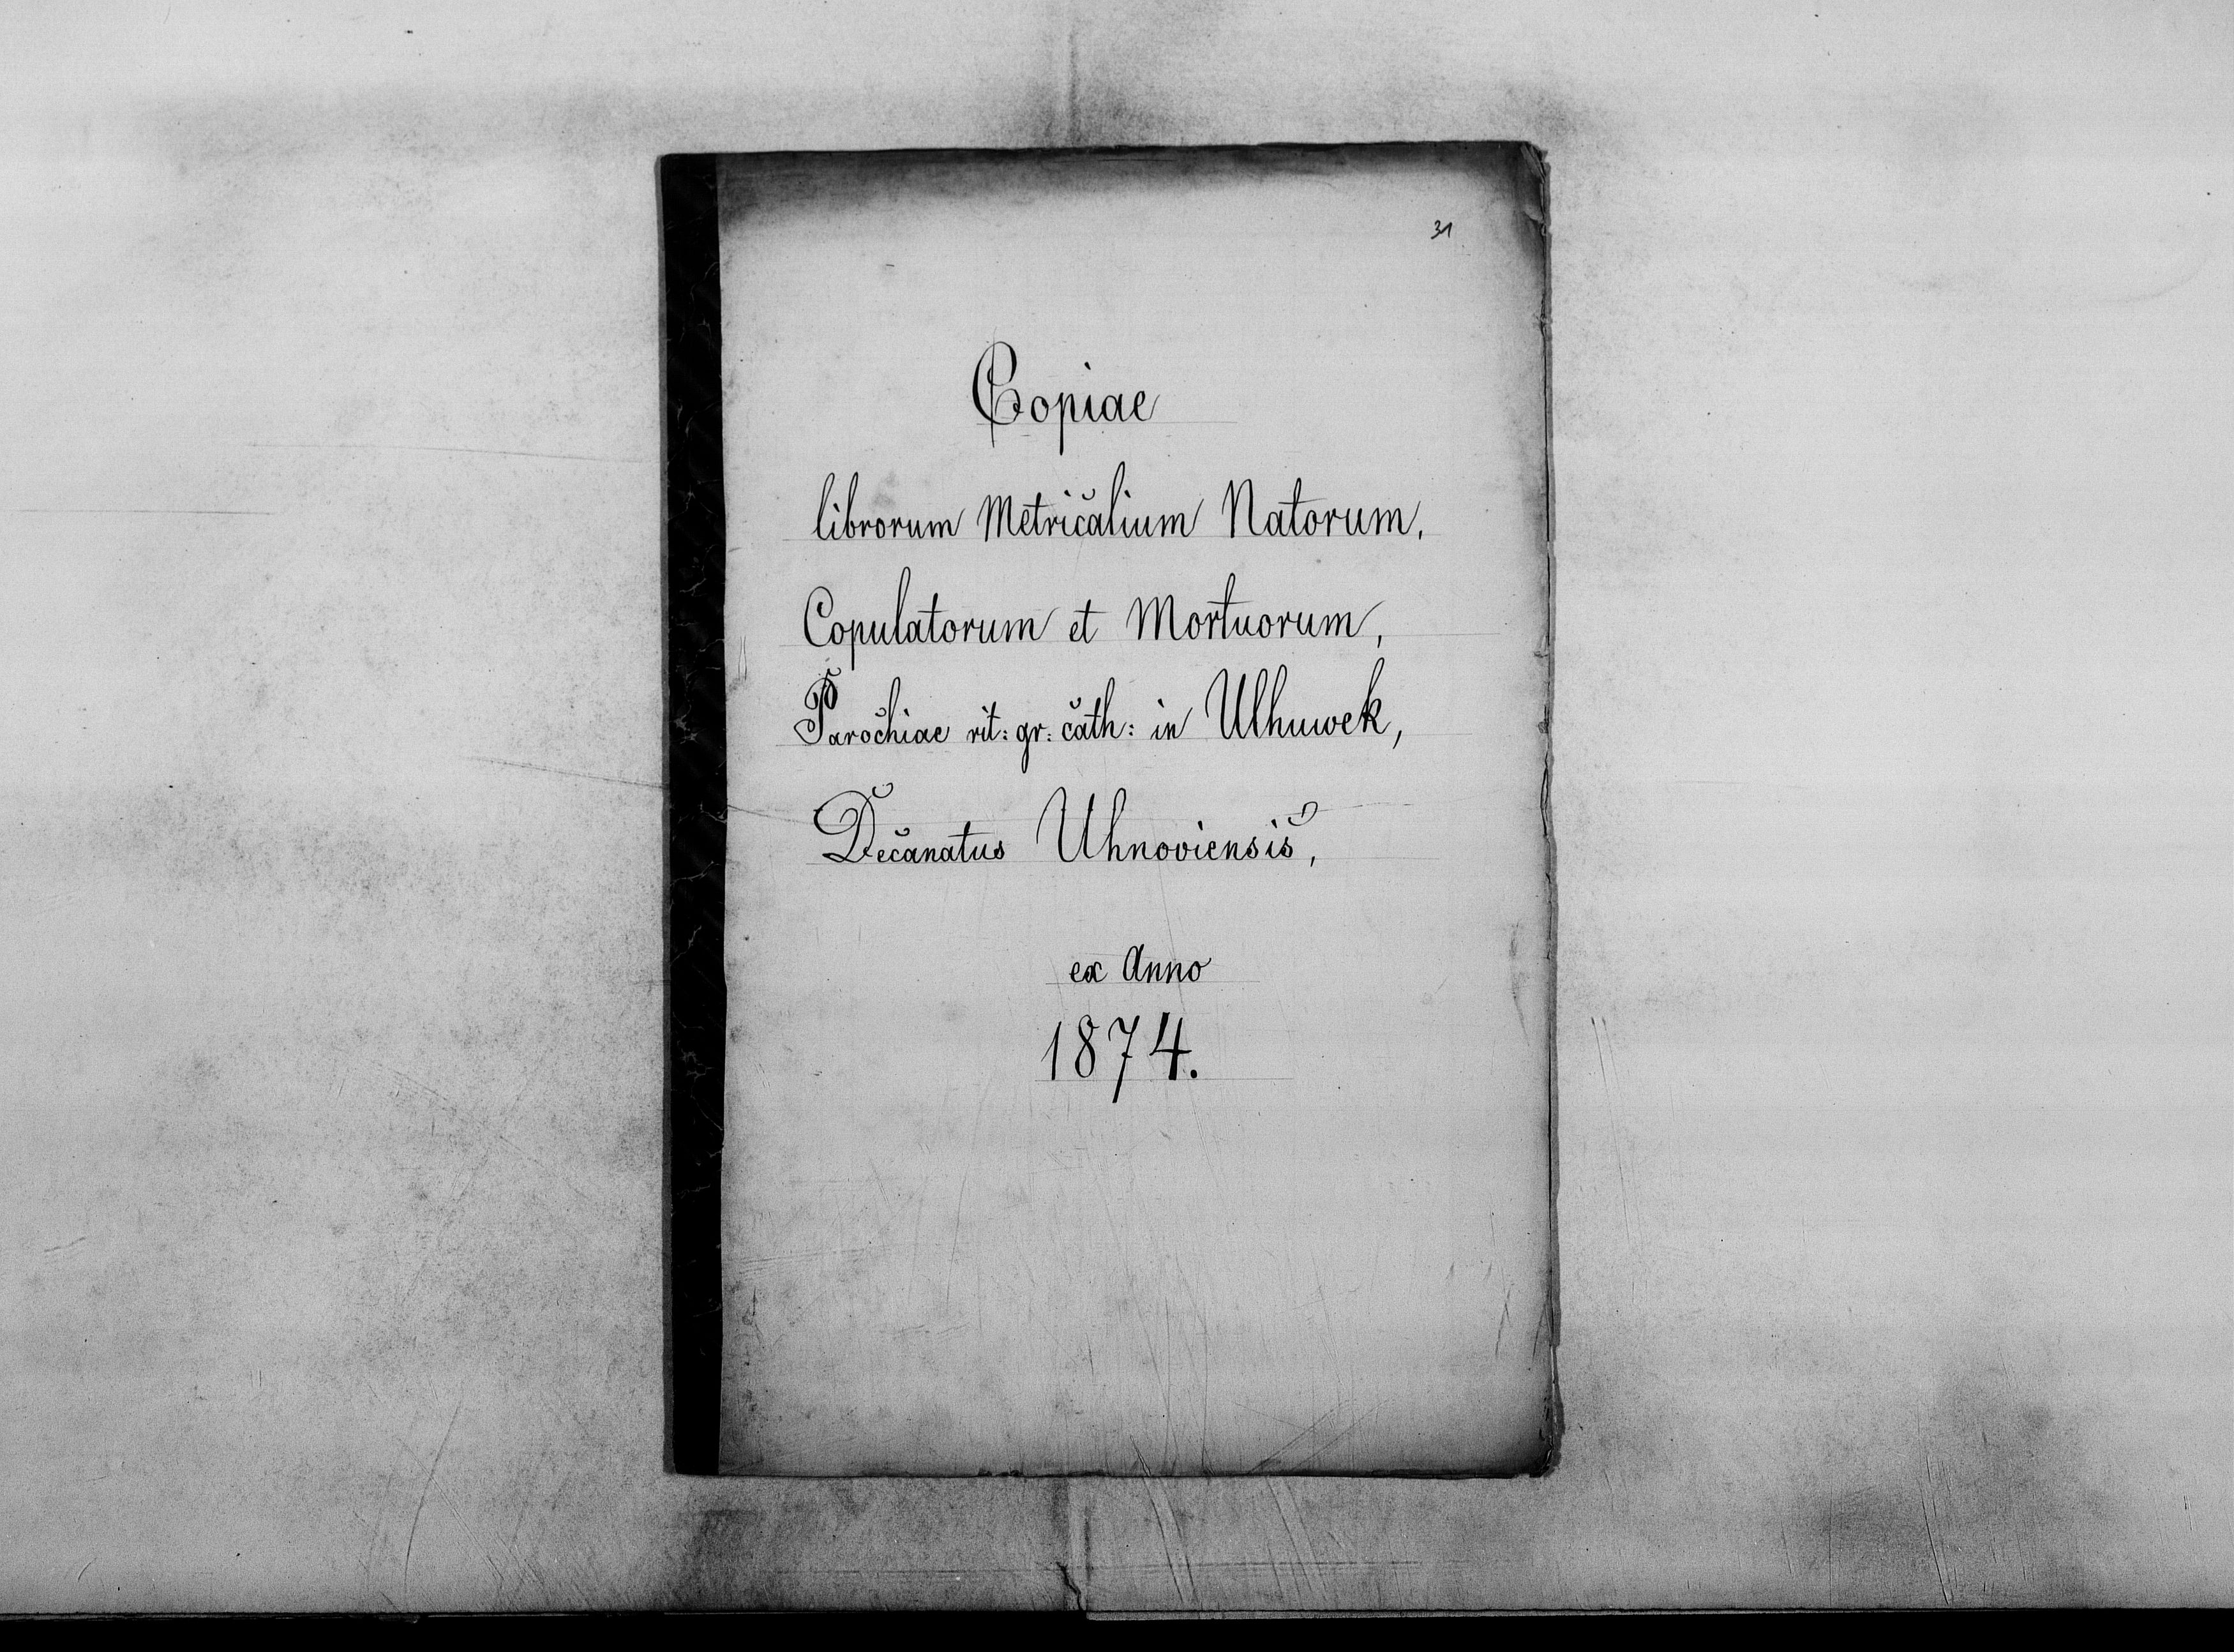 31
Copiae
librorum Metricalium Natorum,
Copulatorum et Mortuorum,
Parochiae rit: gr: cath: in Ulhuwek,
Decanatus Uhnoviensis,
ex Anno
1874.